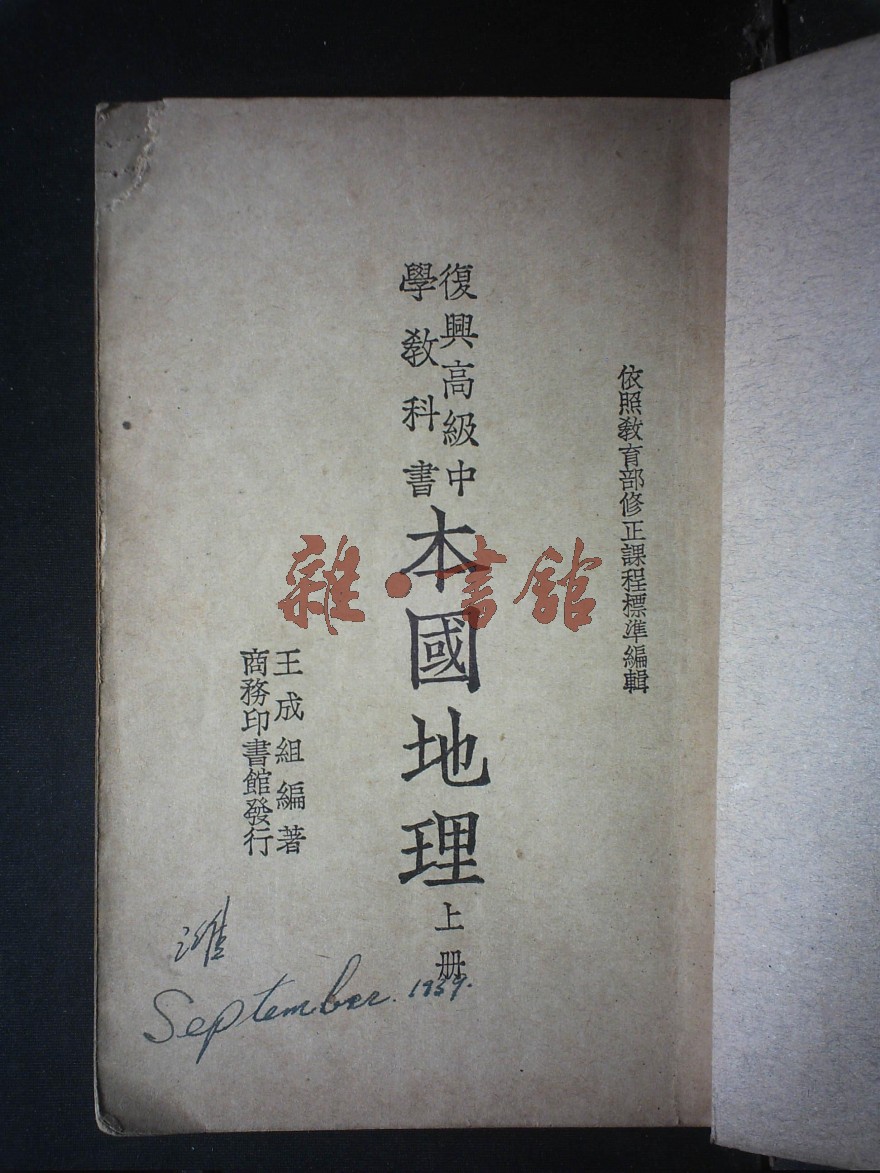 依照教育部修正課程標準編輯
復興高級中
學教科書
本國地理上册
王成組編著
商務印書館發行
雜·書館
濰
September. 1939.